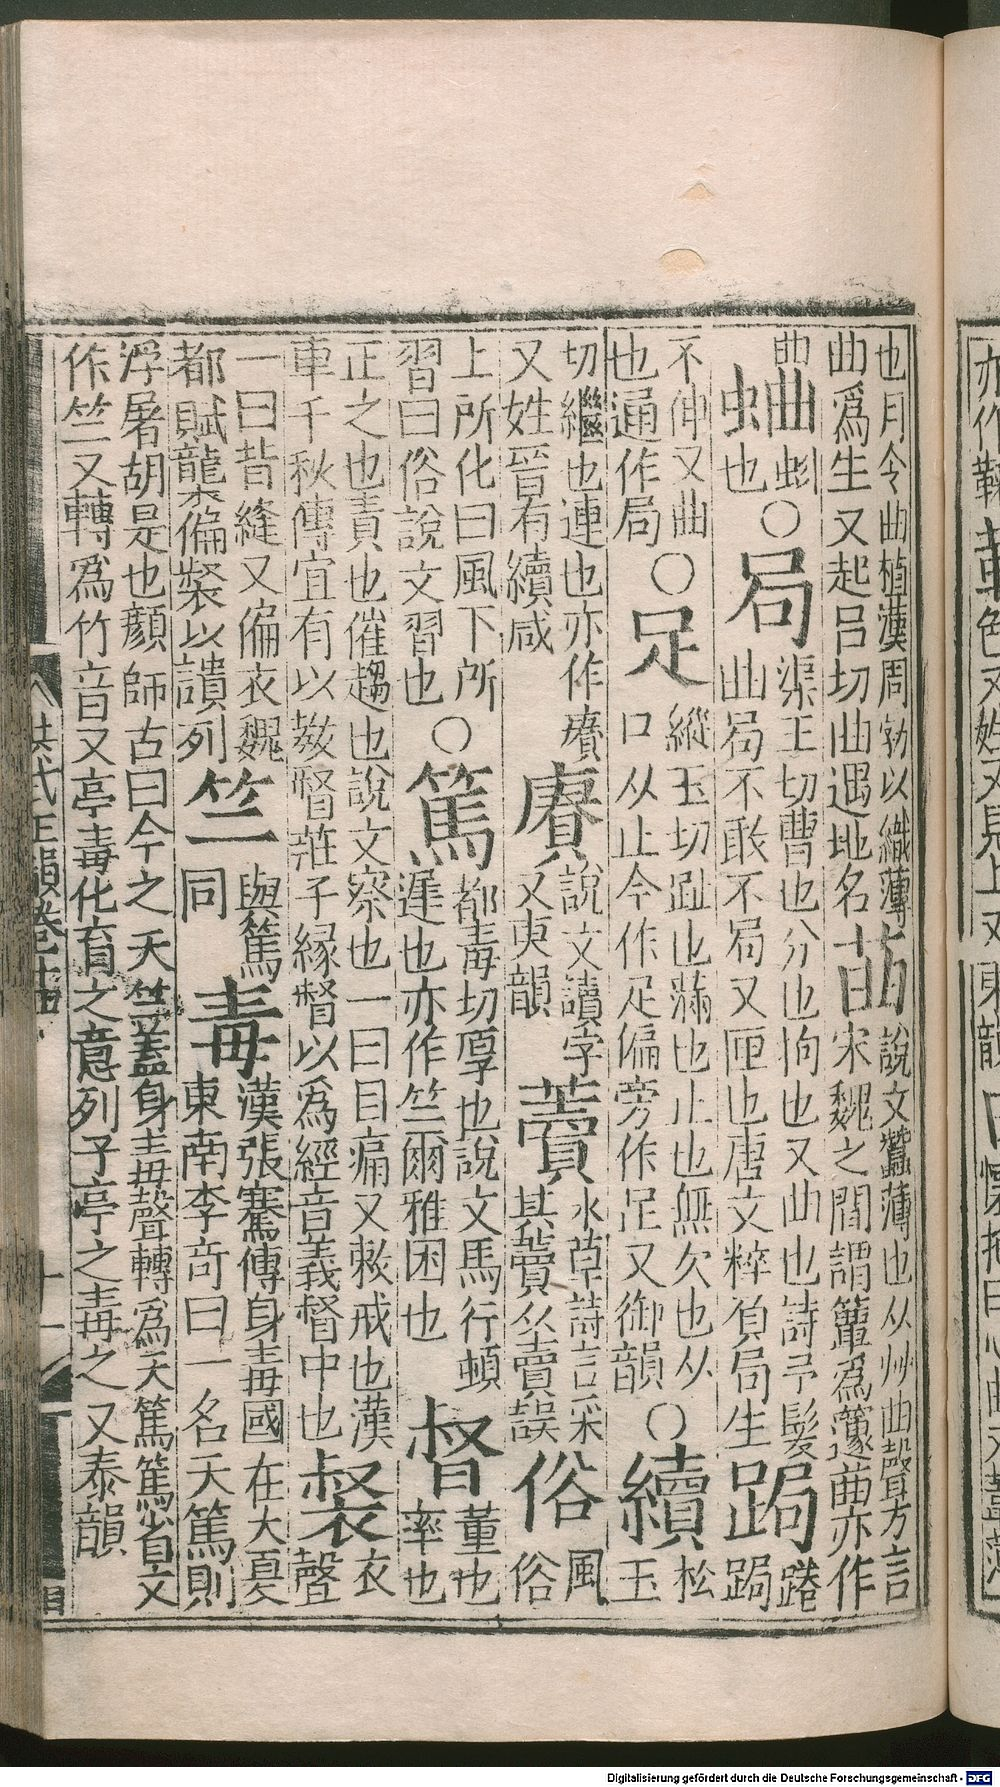 也月令曲植漢周勃以織薄
曲爲生又起呂切曲遇地名
苗
說文蠶薄也从艸曲聲方言
宋魏之閒謂籅爲籧曲亦作
曲
蛐
蛐蟮
也
○
局
渠王切曹也分也拘也又曲也詩予髮
曲局不敢不局又匣也唐文粹負局生
跼
踡
跼
不伸又曲
也通作局
○
足
縱玉切趾也滿也止也無欠也从
口从止今作足偏旁作𧾷又御韻
○
續
松
玉
切繼也連也亦作賡
又姓晉有續咸
賡
說文讀字
又庚韻
藚
水草詩言采
其藚从賣誤
俗
風
俗
上所化曰風下所
習曰俗說文習也
○
篤
都毒切厚也說文馬行頓
遲也亦作竺爾雅困也
督
董也
率也
正之也責也催趨也說文察也一曰目痛又敕戒也漢
車千秋傳宜有以敎督莊子緣督以爲經音義督中也
裻
衣
聲
一曰背縫又偏衣魏
都賦龍袞偏裻以讀列
竺
與篤
同
毒
漢張騫傳身毒國在大夏
東南李奇曰一名天篤則
浮屠胡是也顏師古曰今之天竺蓋身毒聲轉爲天篤篤省文
作竺又轉爲竹音又亭毒化育之意列子亭之毒之又泰韻
洪武正韻卷十四
十一
亦作
色又姓又見上又
東韻